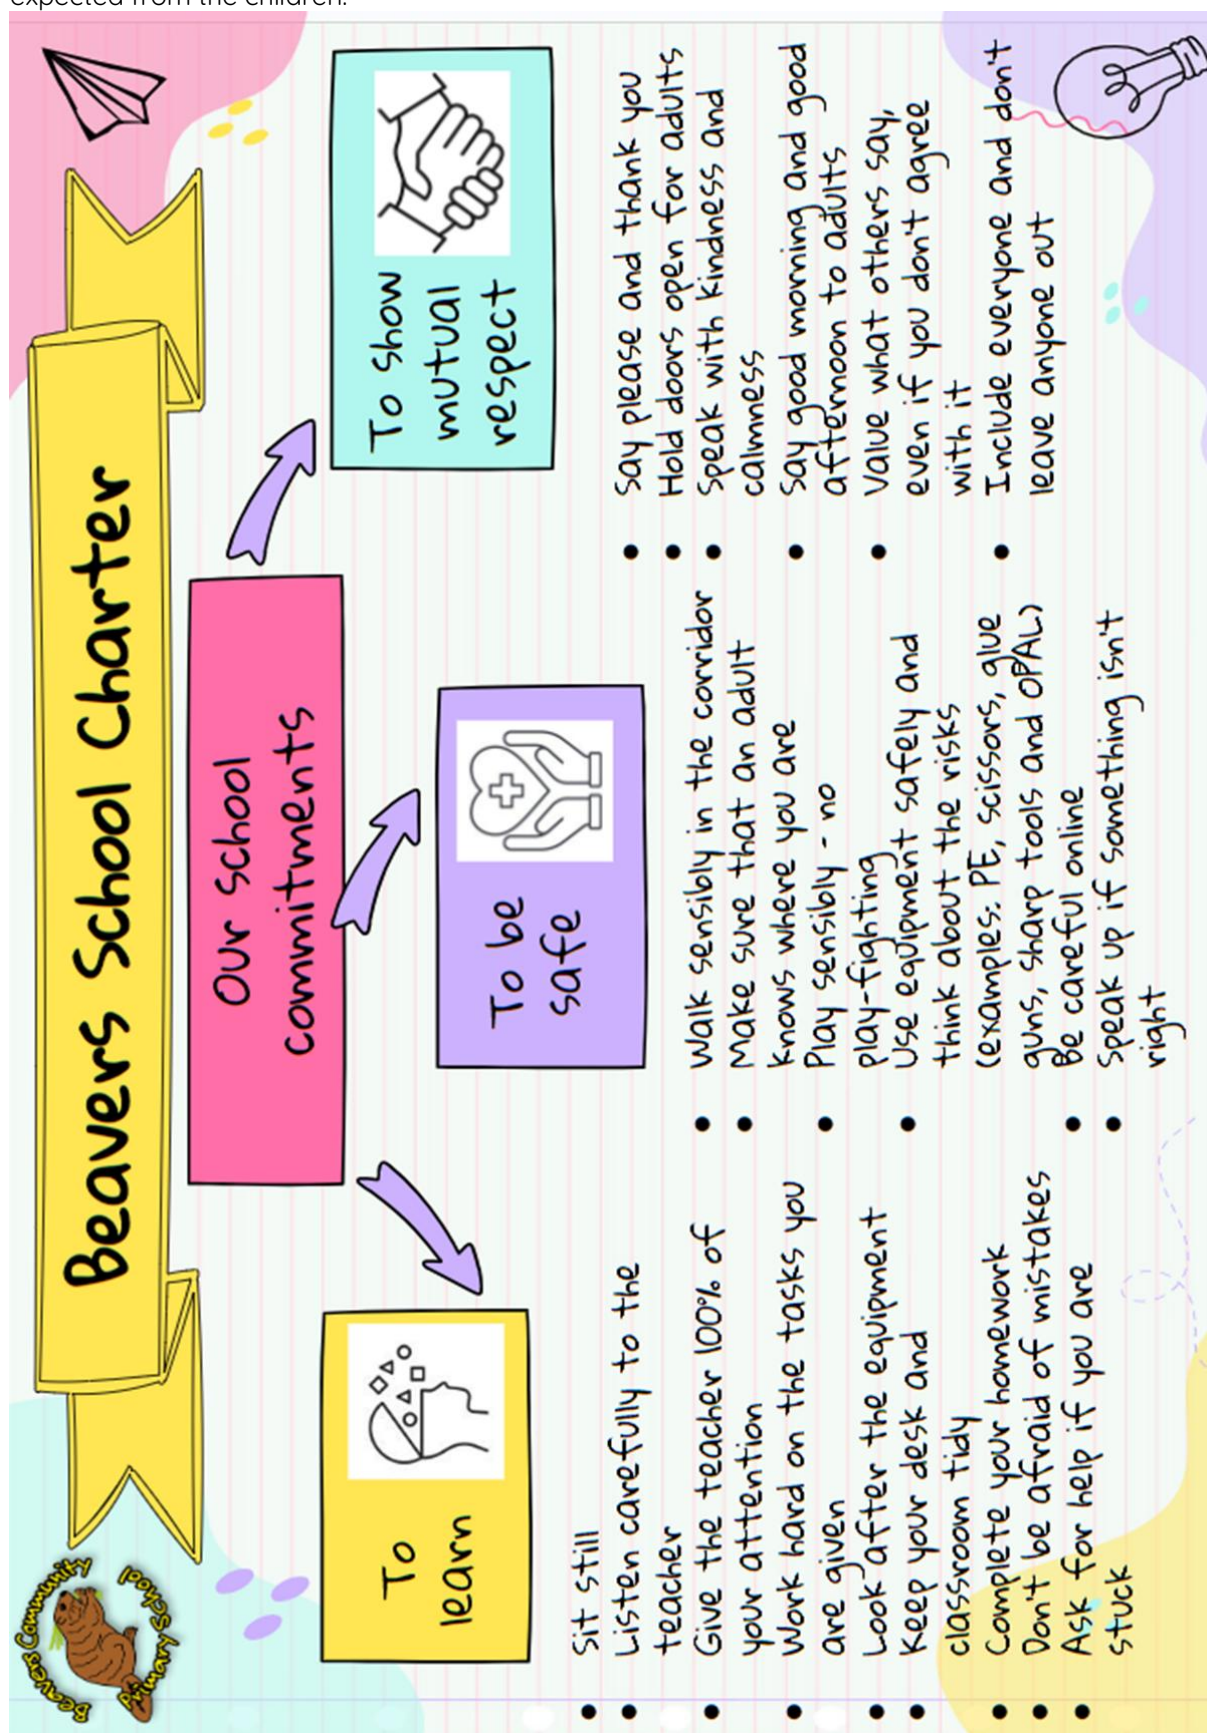 expected from the children.
Beavers Community
Primary School
Beavers School Charter
Our school
commitments
To
learn
• Sit still
• Listen carefully to the
teacher
• Give the teacher 100% of
your attention
• Work hard on the tasks you
are given
• Look after the equipment
• Keep your desk and
classroom tidy
• Complete your homework
• Don't be afraid of mistakes
• Ask for help if you are
stuck
To be
safe
• Walk sensibly in the corridor
• Make sure that an adult
knows where you are
• Play sensibly - no
play-fighting
• Use equipment safely and
think about the risks
(examples: PE, scissors, glue
guns, sharp tools and OPAL)
• Be careful online
• Speak up if something isn't
right
To show
mutual
respect
• Say please and thank you
• Hold doors open for adults
• Speak with kindness and
calmness
• Say good morning and good
afternoon to adults
• Value what others say,
even if you don't agree
with it
• Include everyone and don't
leave anyone out